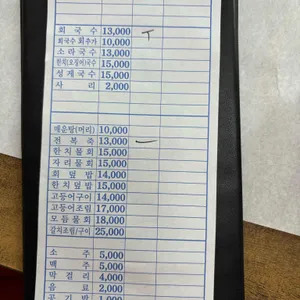 회 국 수 13,000 ㅜ
회국수 회추가 10,000
소 라 국 수 13,000
한치(오징어)국수 15,000
성 게 국 수 15,000
사 리 2,000
매운탕(머리) 10,000
전 복 죽 13,000 ㅡ
한 치 물 회 15,000
자 리 물 회 15,000
회 덮 밥 14,000
한 치 덮 밥 15,000
고등어구이 14,000
고등어조림 17,000
모 듬 물 회 18,000
갈치조림/구이 25,000
소 주 5,000
맥 주 5,000
막 걸 리 4,000
음 료 2,000
공 기 밥 1,000